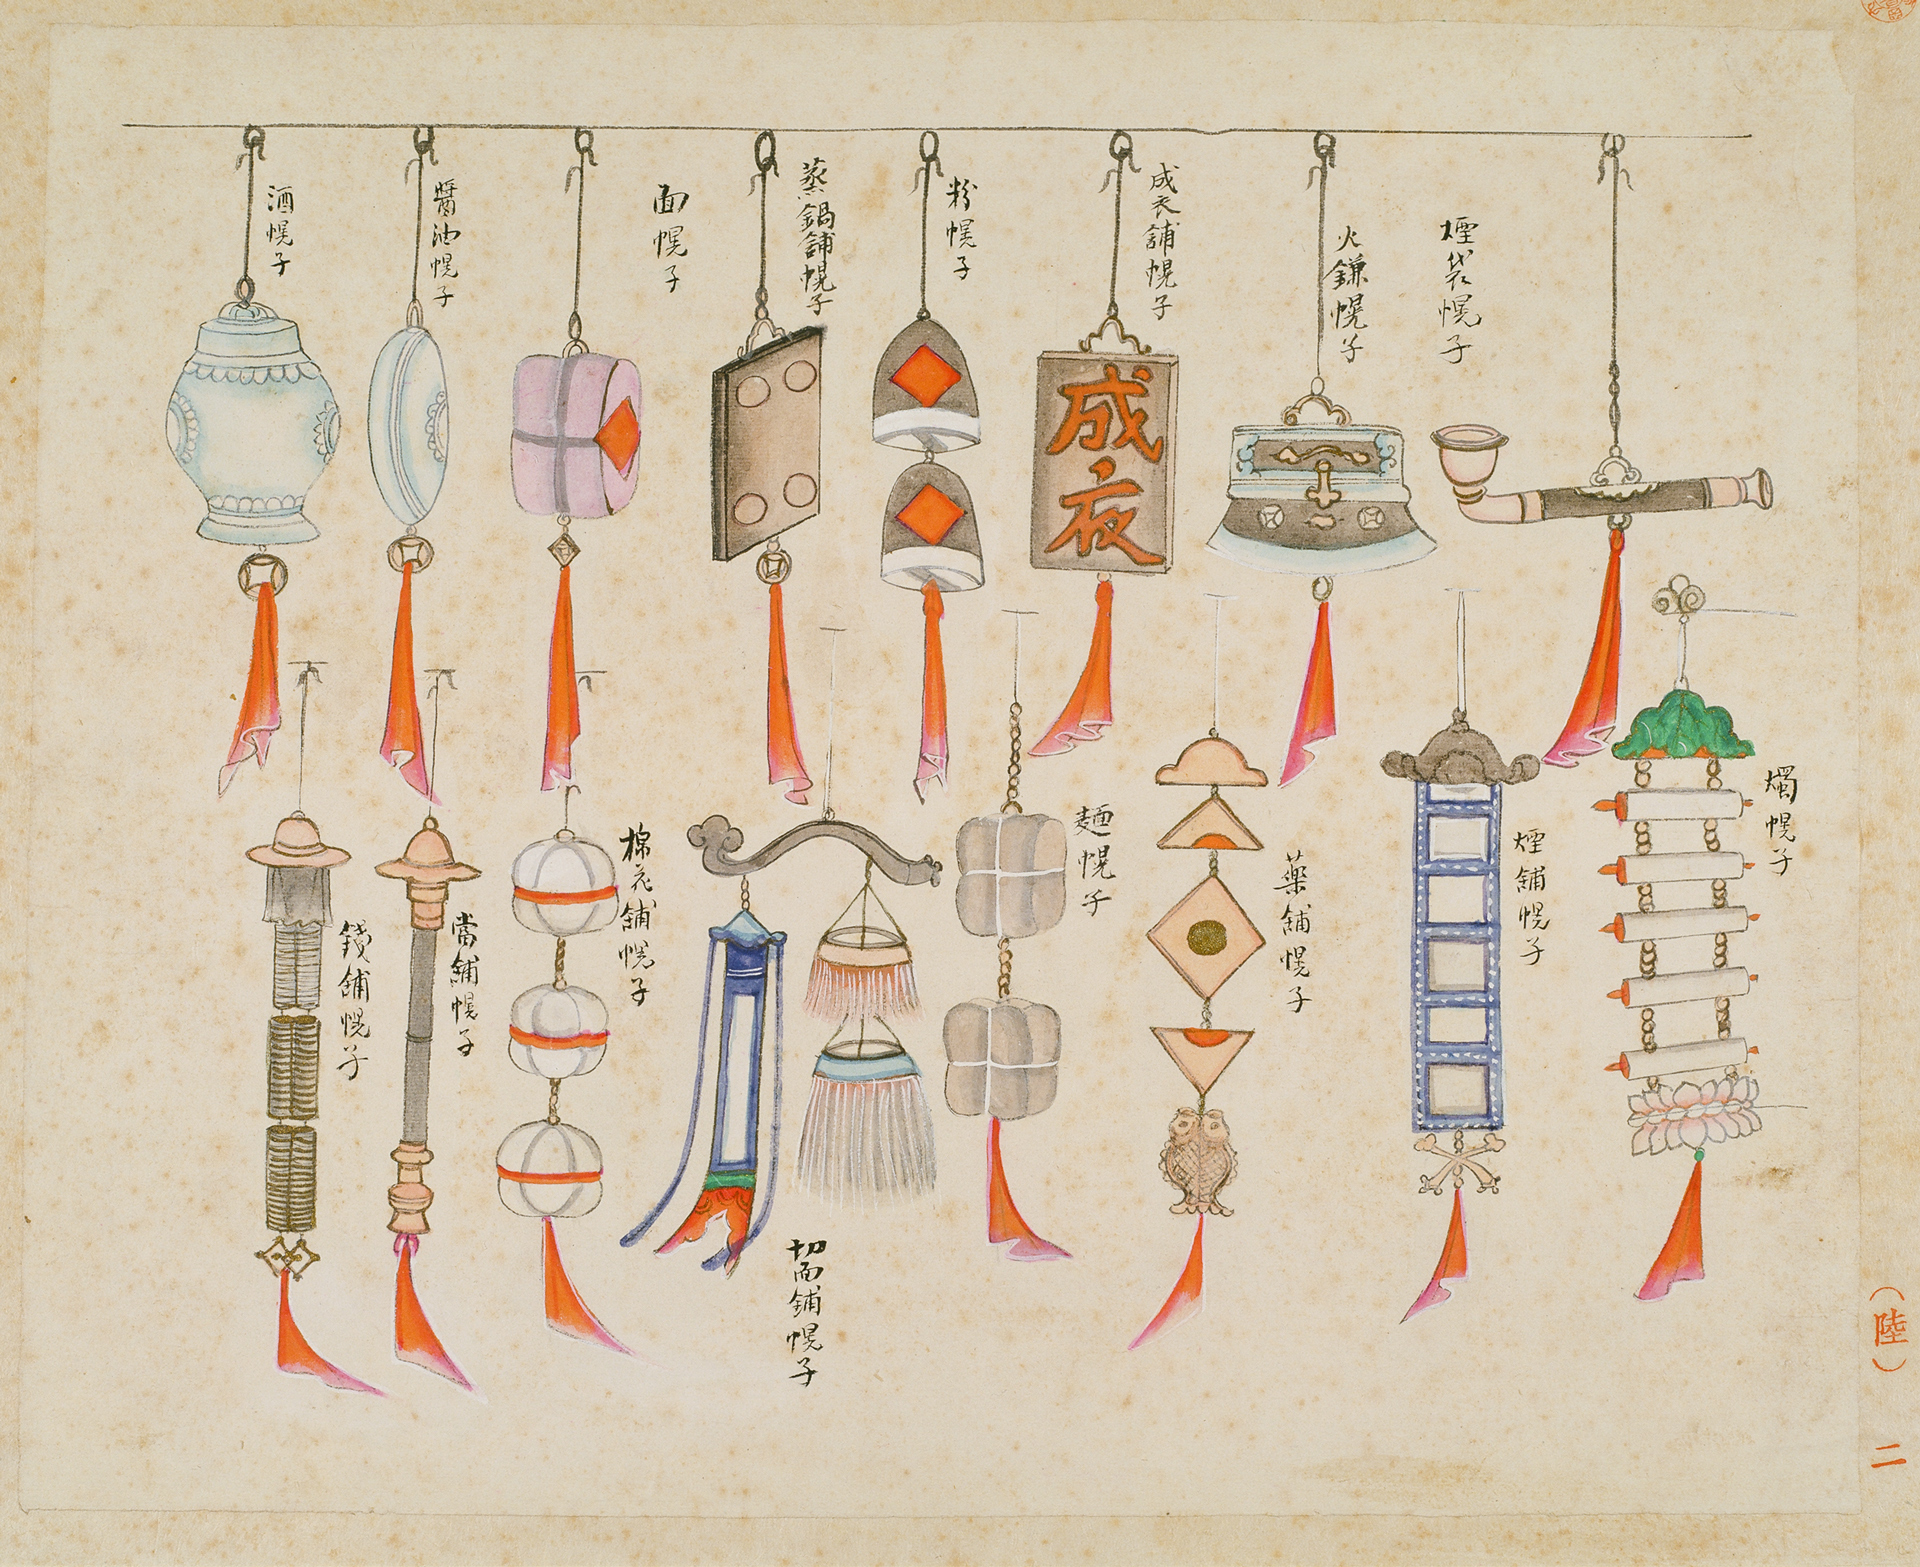 酒幌子
醬油幌子
面幌子
蒸鍋舖幌子
粉幌子
成衣舖幌子
成夜
火鐮幌子
煙袋幌子
錢舖幌子
當舖幌子
棉花舖幌子
切面舖幌子
麵幌子
藥舖幌子
煙舖幌子
燭幌子
（陸）
二